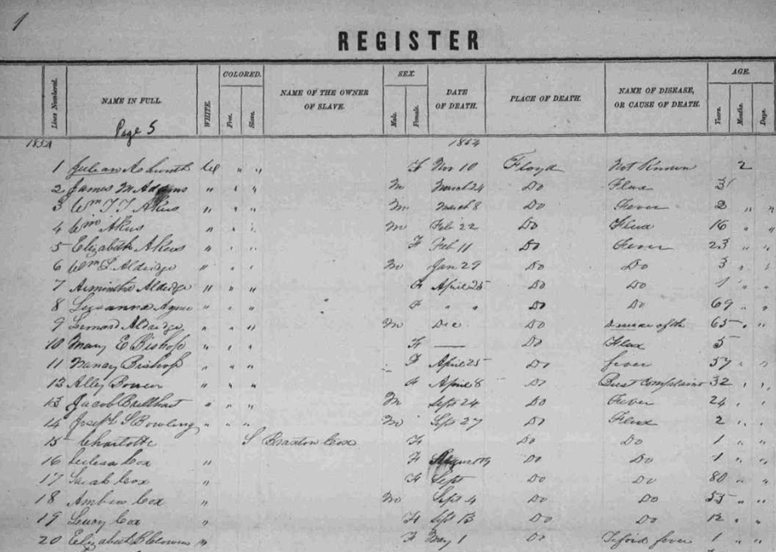 1
REGISTER
Lines Numbered. NAME IN FULL. WHITE. COLORED. Free. Slave. NAME OF THE OWNER OF SLAVE. SEX. Male. Female. DATE OF DEATH. PLACE OF DEATH. NAME OF DISEASE, OR CAUSE OF DEATH. AGE. Years. Months. Days.
Page 5
1854 1854
1 Julian Ashworth F Nov 10 Floyd Not Known 2
2 James M M March 24 Do Flux 3
3 Wm T T Akers M March 8 Do Fever 2 " "
4 Wm Akers M Feb 22 Do Flux 16 " "
5 Elizabeth Akers F Feb 11 Do Fever 23 " "
6 Wm Aldridge M Jan 29 Do Do 3 " "
7 Armintha Aldridge F April 25 Do Do 1 " "
8 F " " Do Do 69 " "
9 Aldridge M Dec Do 65 " "
10 Mary E Bishop F — Do Flux 5
11 Nancy Bishop F April 25 Do fever 57 " "
12 Alley Bower F April 8 Do 32 " "
13 Jacob Brillhart M Sept 24 Do Fever 24 " "
14 Joseph S Bowling M Sept 27 Do Flux 2 " "
15 Charlotte S Braxton Cox F Do Do 1 " "
16 Cox " F Do Do 1 " "
17 Sarah Cox " F Sept Do Do 80 " "
18 Cox " M Sept 4 Do Do 55 " "
19 Cox " F Sept 13 Do Do 12 " "
20 Elizabeth " F May 1 Do fever 1 " "